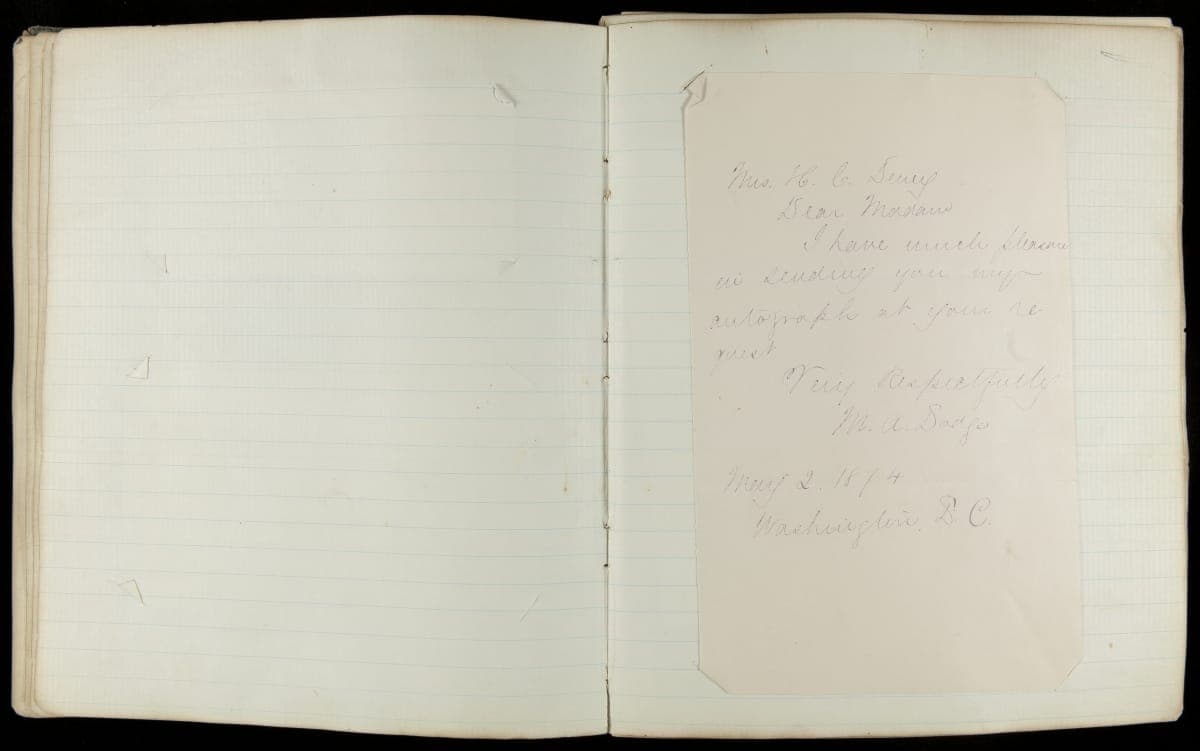 Mrs. H. C. Dewey
Dear Madam
I have much pleasure
in sending you my
autograph at your re
quest
Very Respectfully
M. A. Dodge
May 2. 1874
Washington, D C.